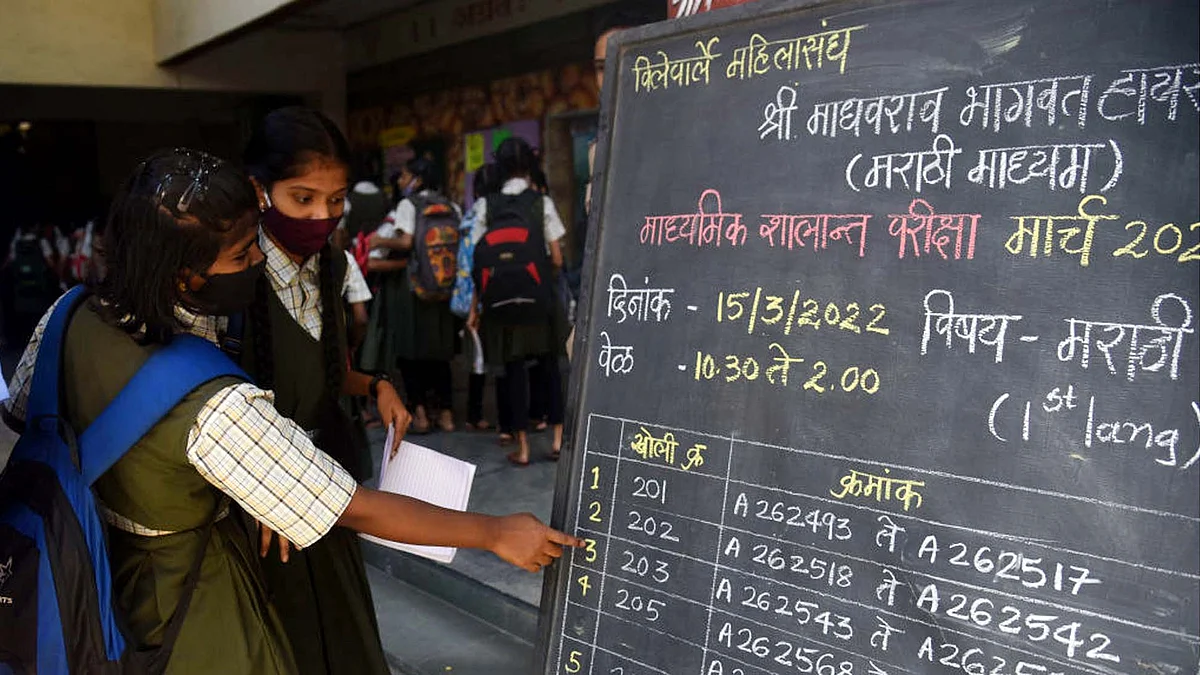 विलेपार्ले महिलासंघ
श्री. माधवराव भागवत
(मराठी माध्यम)
माध्यमिक शालान्त परीक्षा मार्च
दिनांक - 15/3/2022 विषय - मराठी
वेळ - 10.30 ते 2.00 (1st lang)
खोली क्र क्रमांक
1 201 A 262493 ते A 262517
2 202 A 262518 ते A 262542
3 203 A 262543 ते
4 205 A 262568
5